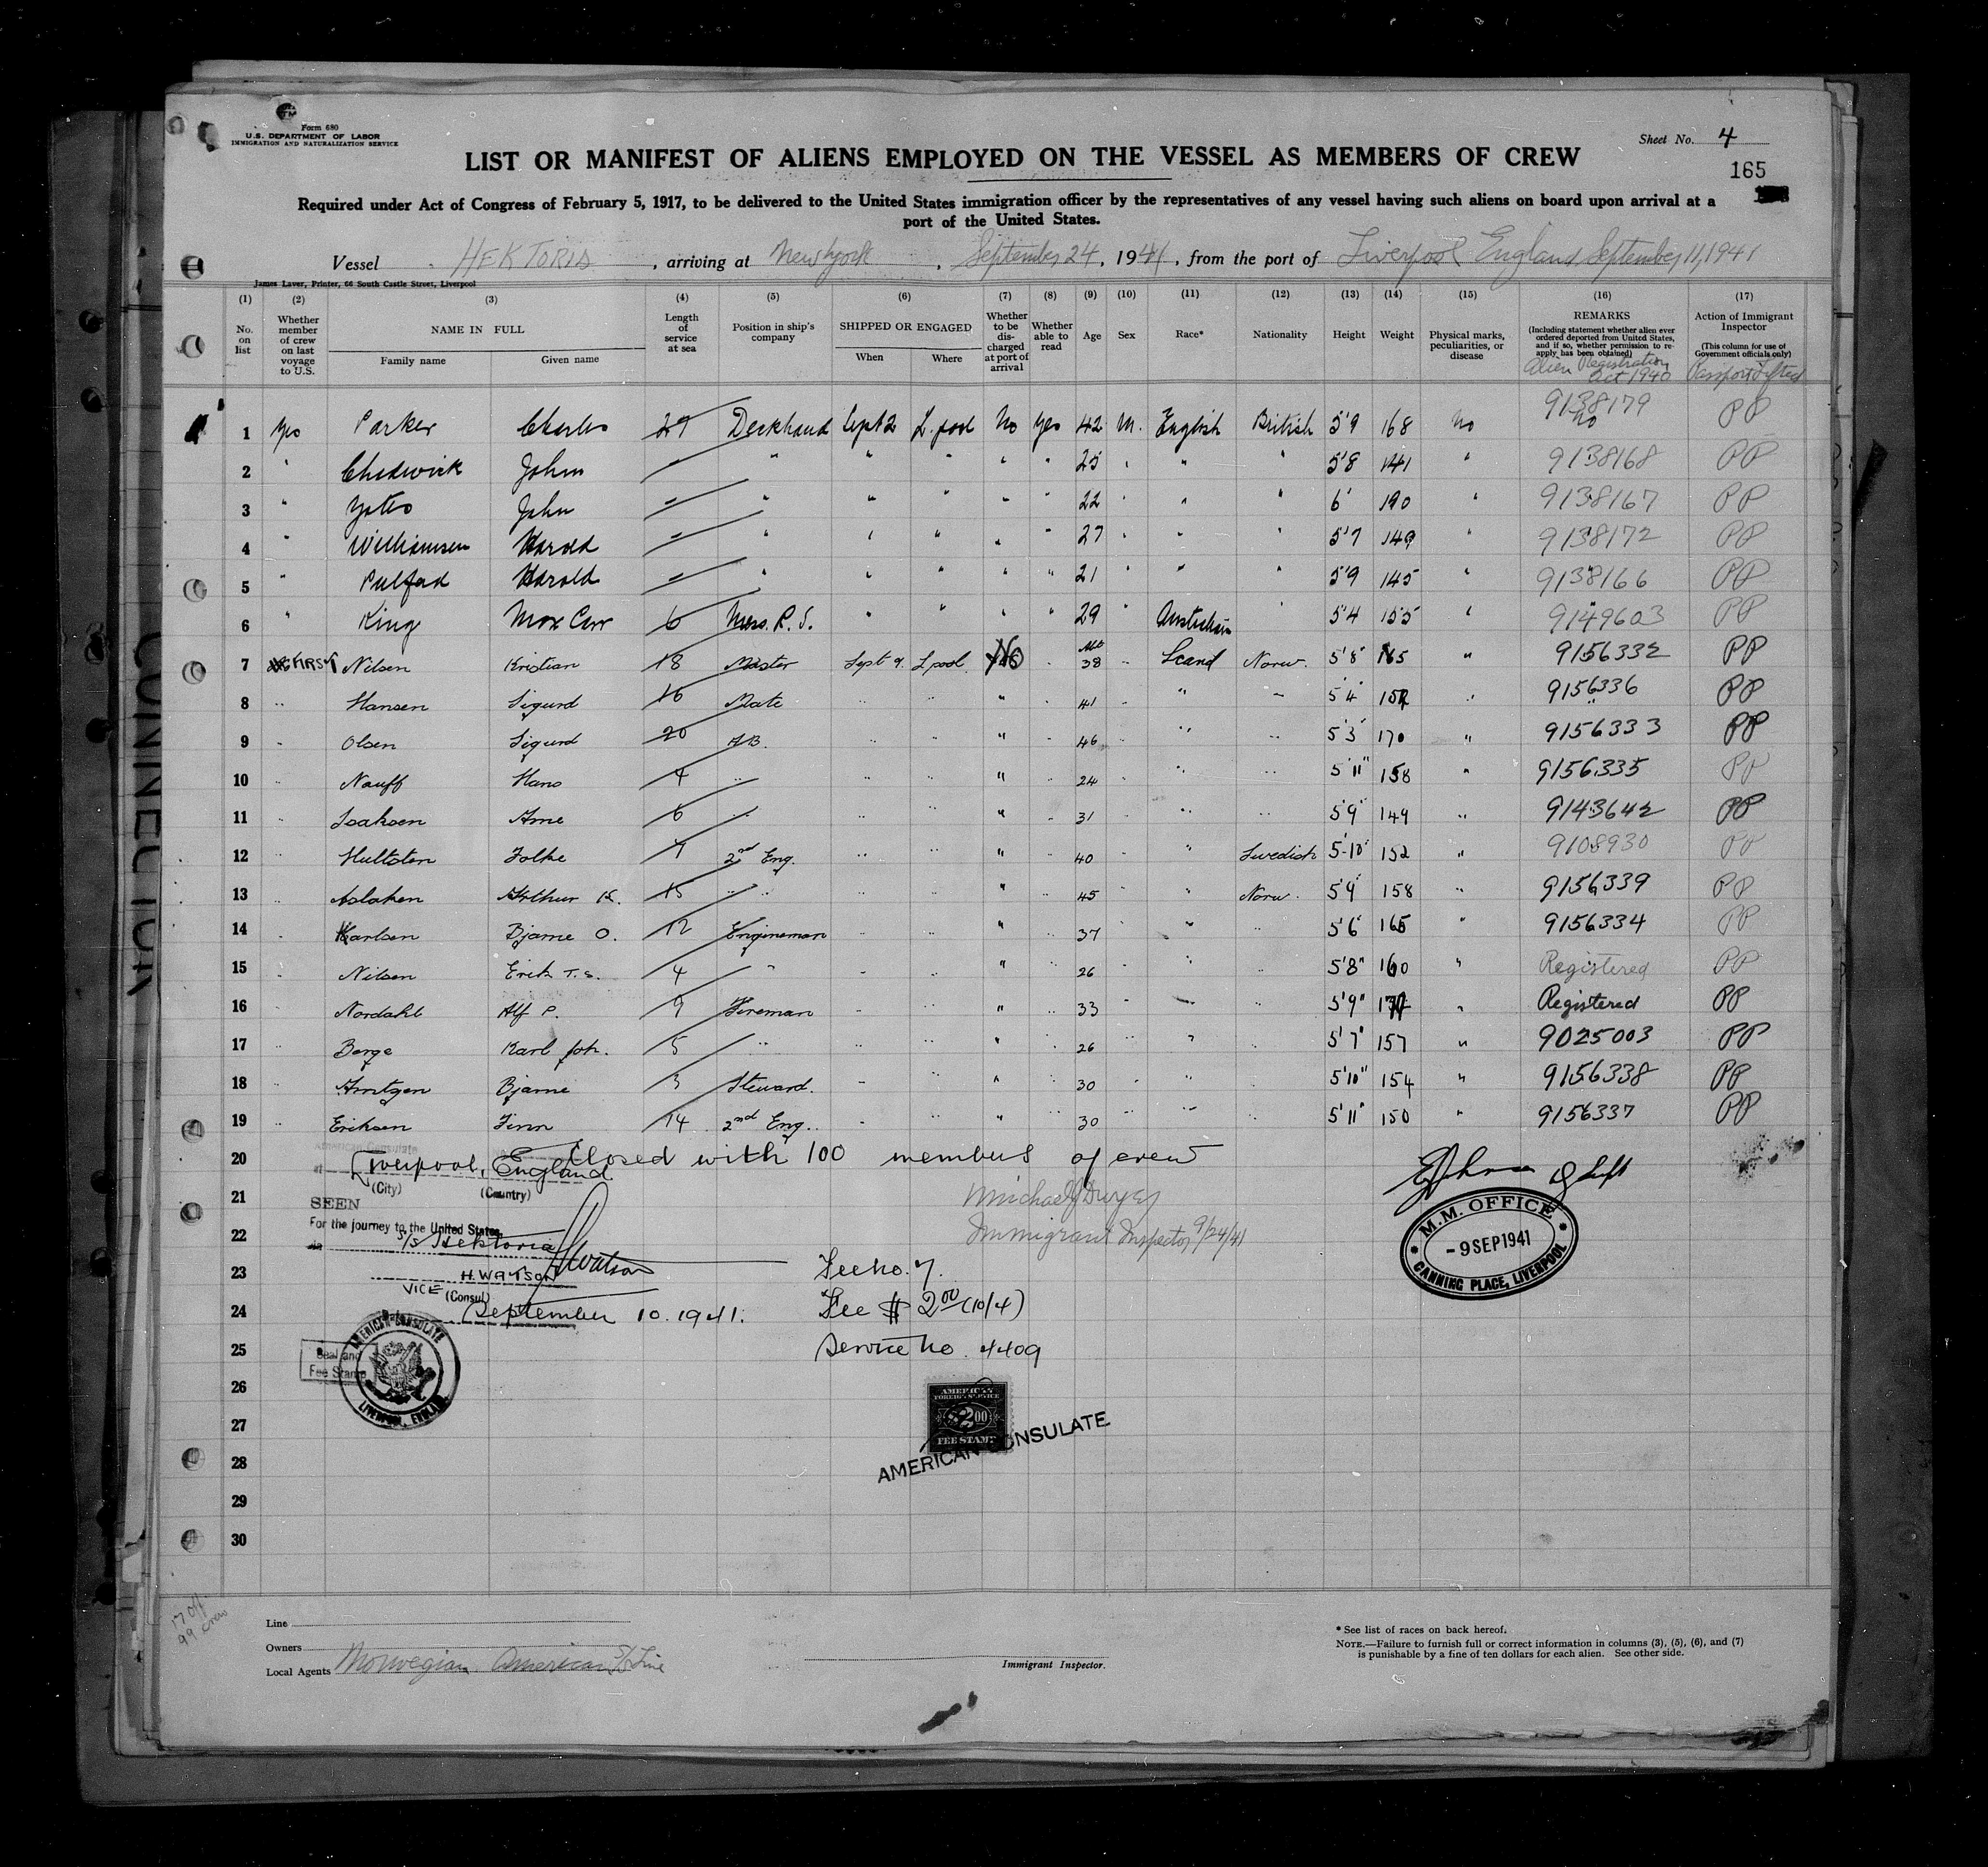 Form 680
U.S. DEPARTMENT OF LABOR
IMMIGRATION AND NATURALIZATION SERVICE
Sheet No. 4
165
LIST OR MANIFEST OF ALIENS EMPLOYED ON THE VESSEL AS MEMBERS OF CREW
Required under Act of Congress of February 5, 1917, to be delivered to the United States immigration officer by the representatives of any vessel having such aliens on board upon arrival at a
port of the United States.
Vessel HEKTORIA, arriving at New York, September 24, 1941, from the port of Liverpool England, September 11, 1941
James Laver, Printer, 66 South Castle Street, Liverpool
(1) (2) (3) (4) (5) (6) (7) (8) (9) (10) (11) (12) (13) (14) (15) (16) (17)
No. on list
Whether member of crew on last voyage to U.S.
NAME IN FULL
Family name Given name
Length of service at sea
Position in ship's company
SHIPPED OR ENGAGED
When Where
Whether to be discharged at port of arrival
Whether able to read
Age
Sex
Race*
Nationality
Height
Weight
Physical marks, peculiarities, or disease
REMARKS
(Including statement whether alien ever ordered deported from United States, and if so, whether permission to re-apply has been obtained)
Alien Registration Act 1940
Action of Immigrant Inspector
(This column for use of Government officials only)
Passport Lifted
1 Yes Parker Charles 27 Deckhand Sept 2 L.pool No Yes 42 M. English British 5'9 168 No 9138179 No PP
2 " Chadwick John " " " " " " 25 " " 5'8 141 " 9138168 PP
3 " Yates John " " " " " " 22 " " " 6' 190 " 9138167 PP
4 " Williamson Harold " " " " " " 27 " " " 5'7 149 " 9138172 PP
5 " Pulford Harold " " " " " " 21 " " " 5'9 145 " 9138166 PP
6 " King Max Carr 6 Mess. R. S. " " " " 29 " Australian " 5'4 155 " 9149603 PP
7 FIRST Nilsen Kristian 18 Master Sept 9. L.pool No " 38 " Scand Norw. 5'8" 165 " 9156332 PP
8 " Hansen Sigurd 16 Mate " " " " 41 " " " 5'4" 152 " 9156336 PP
9 " Olsen Sigurd 20 A.B. " " " " 46 " " " 5'3" 170 " 9156333 PP
10 " Nauff Hans 4 " " " " " 24 " " " 5'11" 158 " 9156335 PP
11 " Isaksen Arne 6 " " " " " 31 " " " 5'9" 149 " 9143642 PP
12 " Hultsten Folke 7 2nd Eng. " " " " 40 " " Swedish 5-10" 152 " 9108930 PP
13 " Aslaksen Arthur K. 15 " " " " " 45 " " Norw. 5'9" 158 " 9156339 PP
14 " Karlsen Bjarne O. 12 Engineman " " " " 37 " " " 5'6" 165 " 9156334 PP
15 " Nilsen Erik T.S. 4 " " " " " 26 " " " 5'8" 160 " Registered PP
16 " Nordahl Alf P. 9 Fireman " " " " 33 " " " 5'9" Registered PP
17 " Berge Karl Joh. 5 " " " " " 26 " " " 5'7" 157 " 9025003 PP
18 " Arntzen Bjarne 3 Steward. " " " " 30 " " " 5'10" 154 " 9156338 PP
19 " Eriksen Finn 14 2nd Eng. " " " " 30 " " " 5'11" 150 " 9156337 PP
20 Closed with 100 members of crew
American Consulate
at Liverpool, England
(City) (Country)
21 Michael J Dwyer
SEEN
For the journey to the United States
22 Immigrant Inspector 9/24/41
S/S Hektoria
M.M. OFFICE
- 9 SEP 1941
CANNING PLACE, LIVERPOOL
23 Fee No. 7.
H. Watson
H. WATSON
VICE (Consul)
24 September 10. 1941. Fee $ 2.00 (10/4)
25 Service No. 4409
Seal and
Fee Stamp
AMERICAN CONSULATE
LIVERPOOL, ENGLAND
26
AMERICAN
FOREIGN SERVICE
$2.00
FEE STAMP
27
AMERICAN CONSULATE
28
29
30
17 off
99 crew
Line
Owners
Local Agents Norwegian American S/S Line
Immigrant Inspector.
* See list of races on back hereof.
NOTE.—Failure to furnish full or correct information in columns (3), (5), (6), and (7)
is punishable by a fine of ten dollars for each alien. See other side.